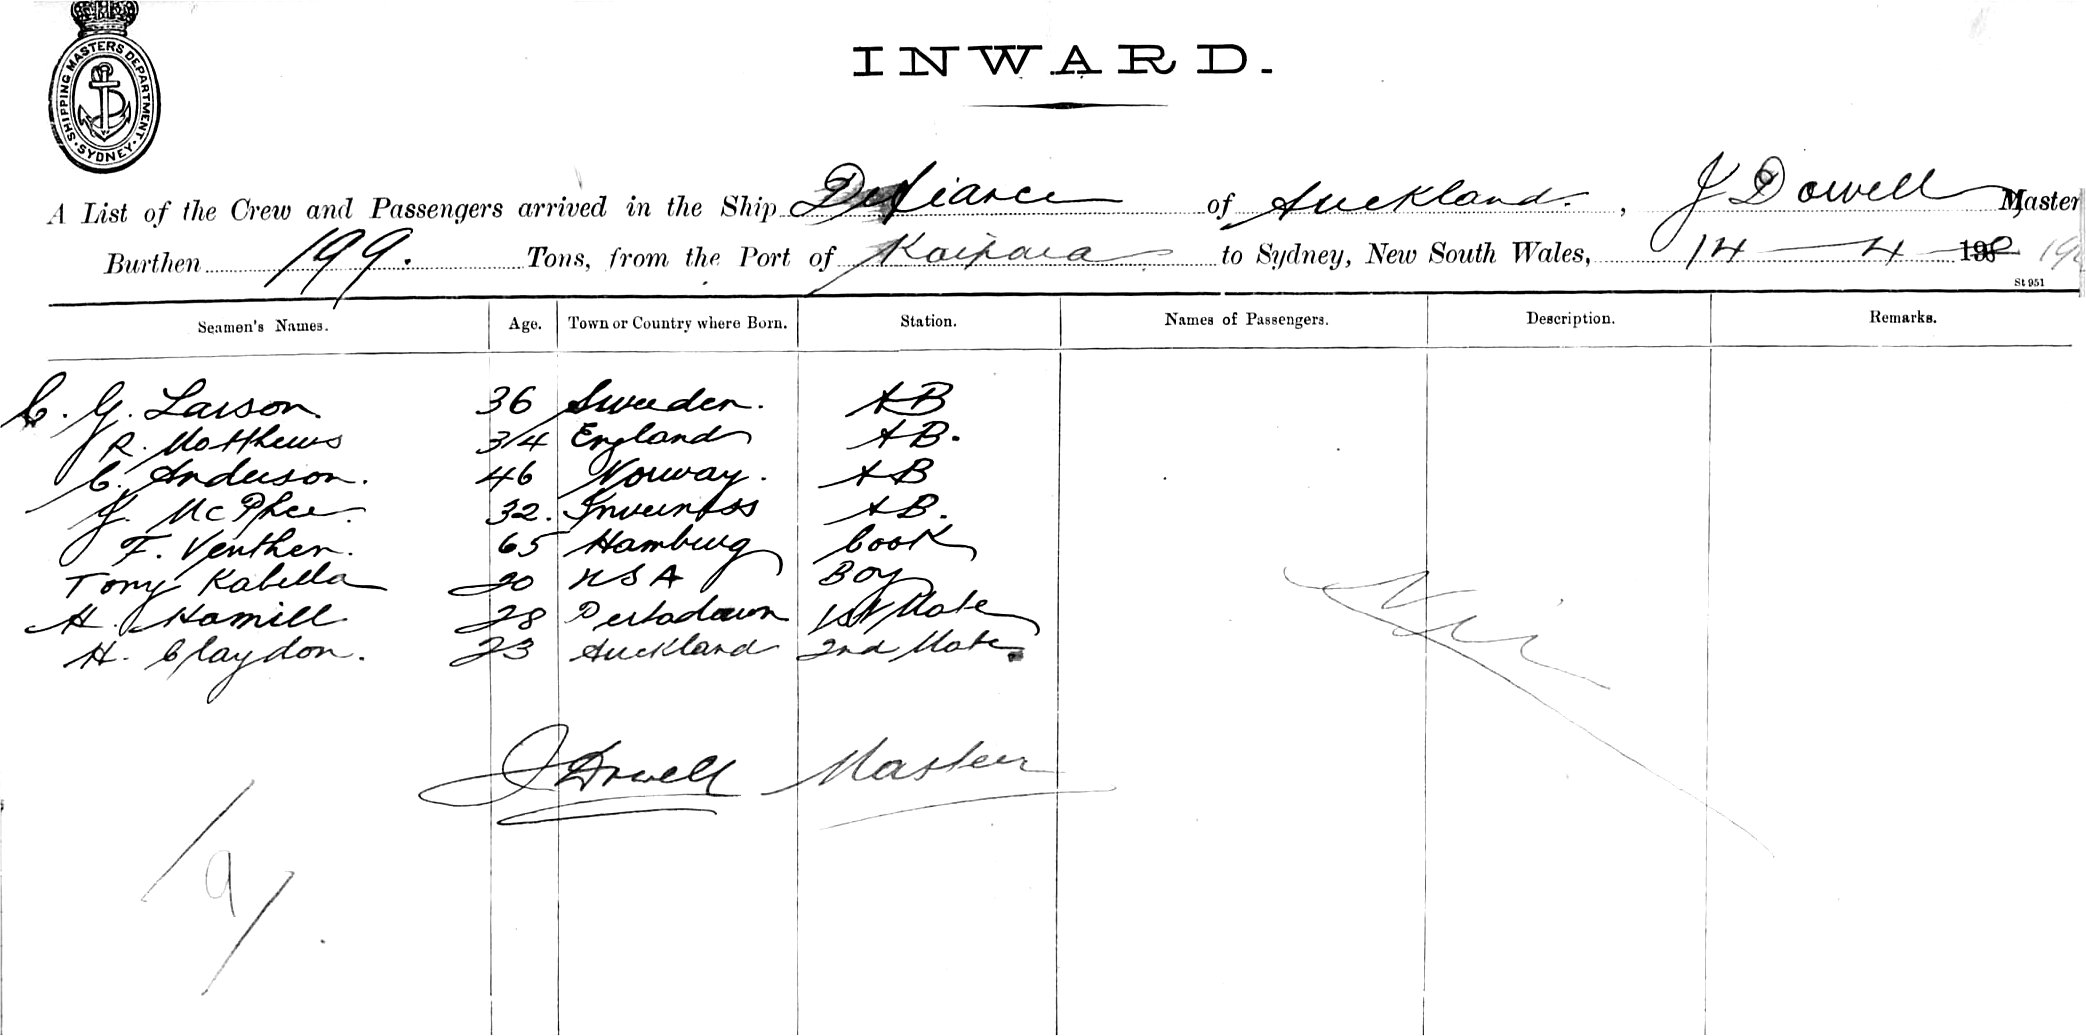 SHIPPING MASTERS DEPARTMENT
SYDNEY
INWARD.
A List of the Crew and Passengers arrived in the Ship Defiance of Auckland. , J Dowell Master,
Burthen 199. Tons, from the Port of Kaipara to Sydney, New South Wales, 14 4
St 951
Seamen's Names. Age. Town or Country where Born. Station. Names of Passengers. Description. Remarks.
C. G. Larson. 36 Sweden. AB
R. Matthews 34 England AB.
C. Anderson. 46 Norway. AB
J. McPhee. 32. Inverness AB.
F. Venther. 65 Hamburg Cook
Tony Kabella 20 USA Boy
H. Hamill 28 Portadown 1st Mate
H. Claydon. 23 Auckland 2nd Mate
Nil
J Dowell Master